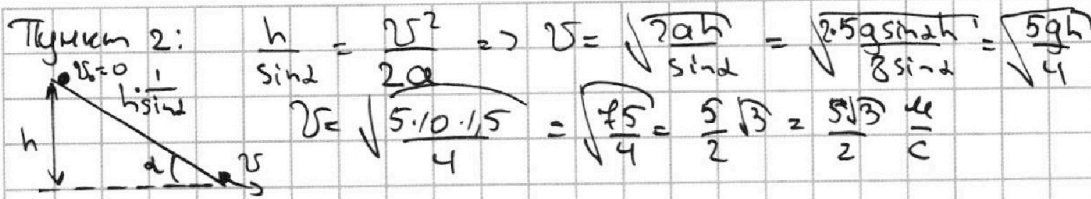 Пункт 2: h/sinα = v²/2a => v = √(2ah/sinα) = √(2·5g sinα h/8 sinα) = √(5gh/4)
v₀=0
h·1/sinα
h
α
v
v = √(5·10·1,5/4) = √(75/4) = 5/2 √3 = 5√3/2 м/с